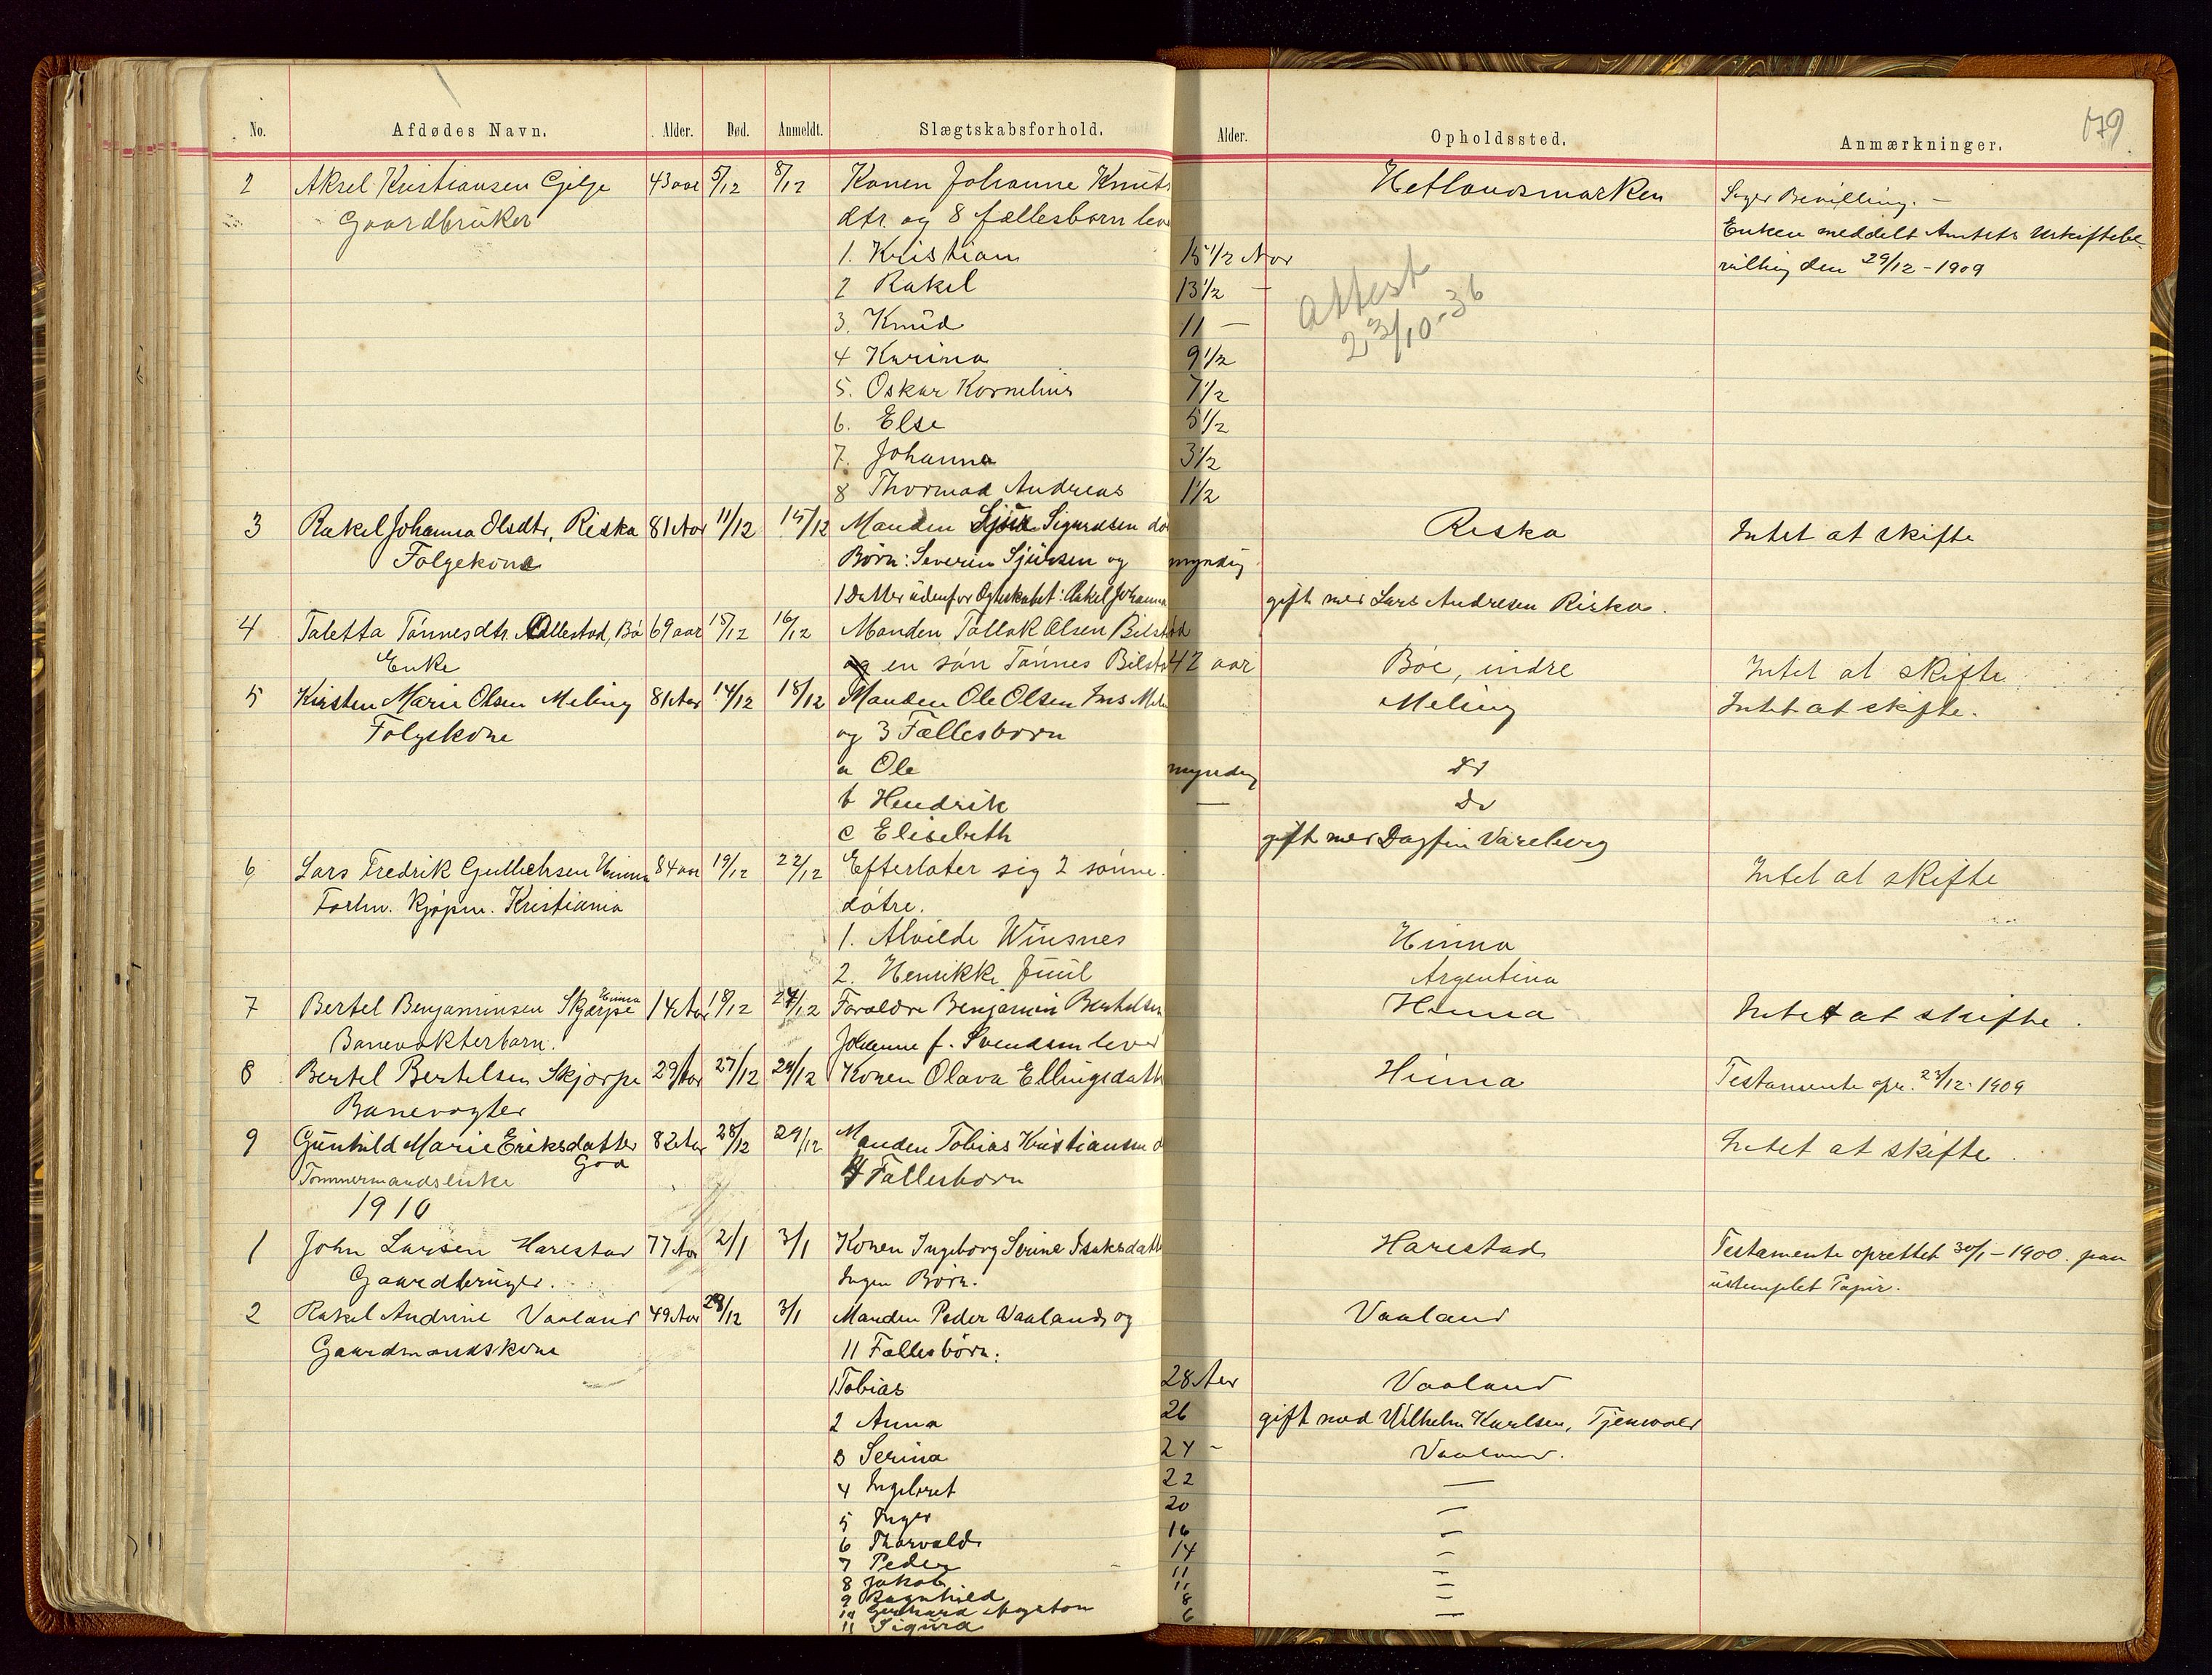 179
No. Afdødes Navn. Alder. Død. Anmeldt. Slægtskabsforhold. Alder. Opholdssted. Anmærkninger.
2 Aksel Kristiansen Gilje 43 aar 5/12 8/12 Konen Johanne Knuts Hetlandsmarken Søger Bevilling. —
Gaardbruker dtr. og 8 fællesbørn lev Enken meddelt Amtets Uskiftebe-
1. Kristian 15 1/2 Aar villing den 29/12 - 1909
2 Rakel 13 1/2 —
Attest
3. Knud 11 —
23/10-36
4 Karina 9 1/2
5. Oskar Kornelius 7 1/2
6. Else 5 1/2
7. Johanna 3 1/2
8 Thormod Andreas 1 1/2
3 Rakel Johanna Olsdtr, Riska 81 Aar 11/12 15/12 Manden Sigurdsen dø Riska Intet at skifte
Følgekone Børn: Severin Sjursen og myndig
1 Datter udenfor Egteskabet: Rakel Johanna gift med Lars Andresen Riska.
4 Taletta Tønnesdtr. Bø 69 aar 15/12 16/12 Manden Tollak Olsen Bilstad
Enke og en søn Tønnes Bilsta 42 aar Bøe, indre Intet at skifte
5 Kirsten Marie Olsen Meling 81 Aar 14/12 18/12 Manden Ole Olsen Meling Intet at skifte.
Følgekone og 3 Fællesbørn
a Ole myndig do
b Hendrik — do
c Elisebeth gift med Dagfin Vareberg
6 Lars Fredrik Hinna 84 aar 19/12 22/12 Efterlater sig 2 sønne- Intet at skifte
Forhv. Kjøpm. Kristiania døtre.
1. Alvilde Winsnes Hinna
2. Henrikke Juul Argentina
7 Bertel Benjaminsen Skjærpe Hinna 14 Aar 18/12 24/12 Forældre Benjamin Bertelsen Hinna Intet at skifte.
Banevokterbarn. Johanne f. Svendsen lever
8 Bertel Bertelsen Skjørpe 29 Aar 27/12 29/12 Konen Olava Ellingsdatt Hinna Testamente opr. 23/12-1909
Banevogter
9 Gunhild Marie Eriksdatter 82 Aar 28/12 29/12 Manden Tobias Kristiansen d Intet at skifte.
Goa
Tømmermandsenke 4 Fællesbørn
1910
1 John Larsen Harestad 77 Aar 2/1 3/1 Konen Ingeborg Serine Isaksdatt Harestad Testamente oprettet 30/1-1900. paa
Gaardbruger. Ingen Børn. ustemplet Papir.
2 Rakel Andrine Vaaland 49 Aar 28/12 3/1 Manden Peder Vaaland og Vaaland
Gaardmandskone 11 Fællesbørn:
1 Tobias 28 Aar Vaaland
2 Anna 26 gift med Wilhelm Karlsen, Tjensvold
3 Serina 24 - Vaaland.
4 Ingebret 22 —
5 Inger 20 —
6 Thorvald 16 —
7 Peder 14 —
8 Jakob 11 —
9 Ragnhild 11 —
10 Gerhard 8 —
11 Sigurd 6 —